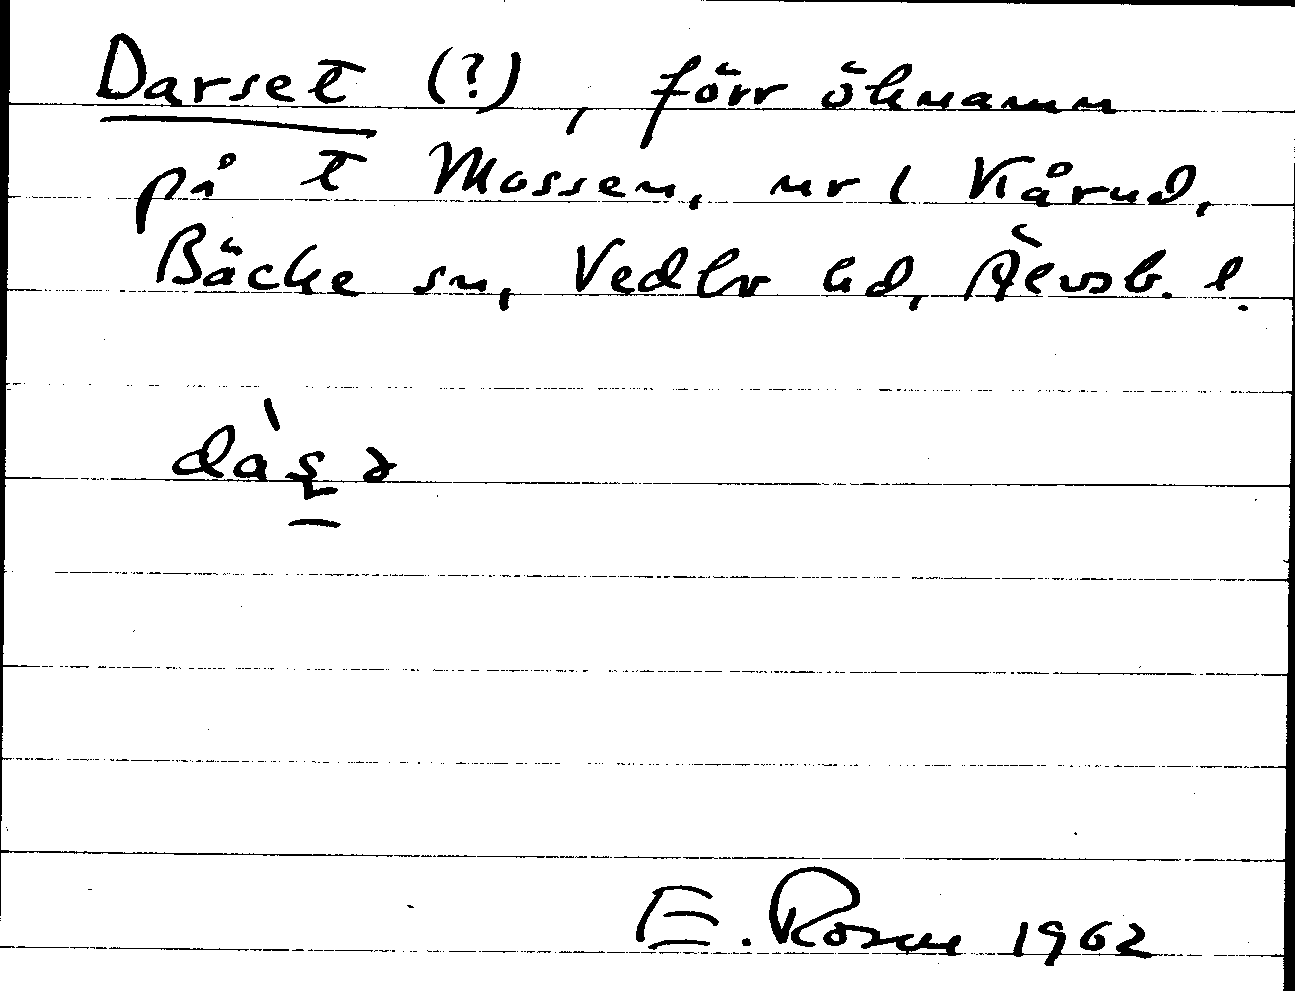 Darset (?), förr öknamn
på t Mossen, nr 1 Kårud,
Bäcke sn, Vedbo hd, Älvsb. l.
dàʂə
E. Rosen 1962